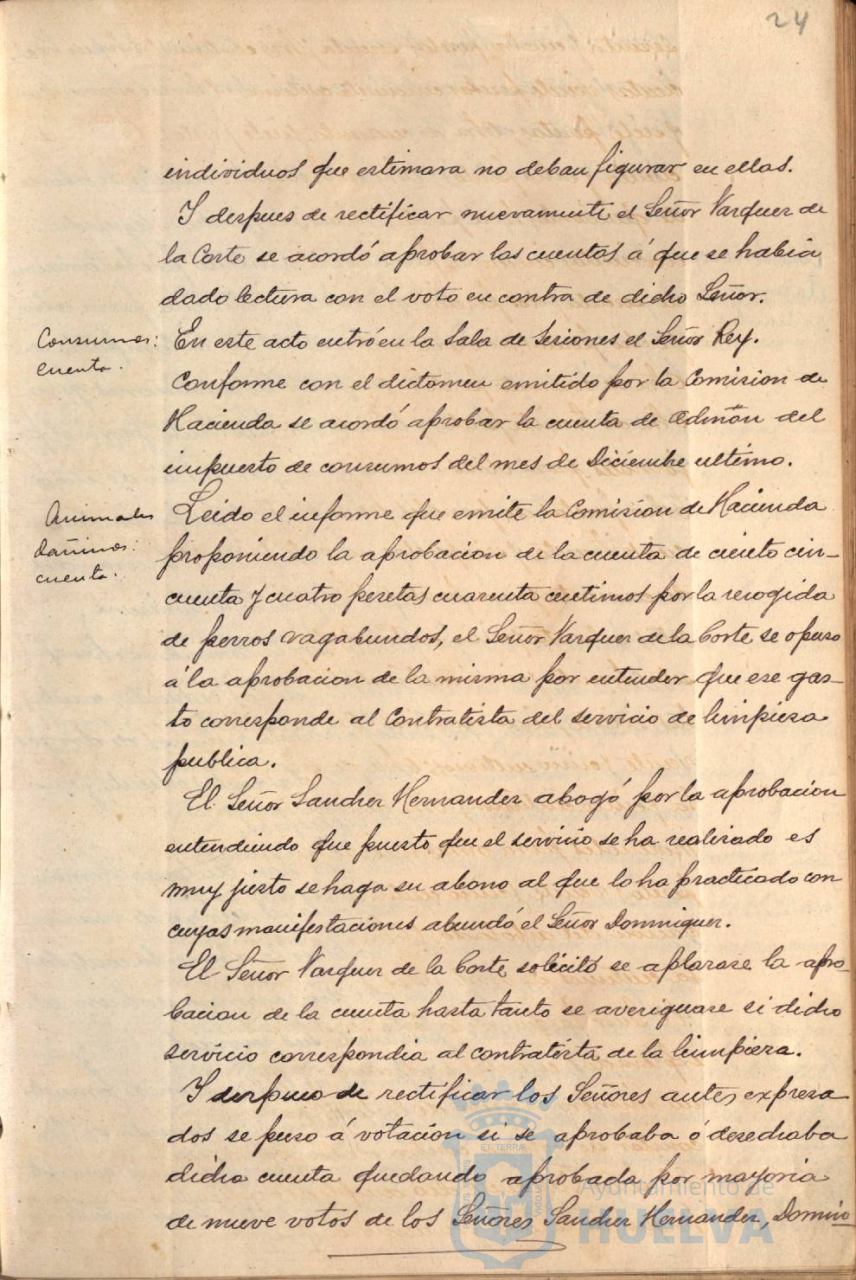 24
individuos que estimara no deban figurar en ellas.
Y despues de rectificar nuevamente el Señor Vazquez de
la Corte se acordó aprobar las cuentas á que se habia
dado lectura con el voto en contra de dicho Señor.
Consumos:
cuenta.
En este acto entró en la Sala de Sesiones el Señor Rey.
Conforme con el dictamen emitido por la Comision de
Hacienda se acordó aprobar la cuenta de Admõn del
impuesto de consumos del mes de Diciembre ultimo.
Animales
dañinos:
cuenta.
Leido el informe que emite la Comision de Hacienda
proponiendo la aprobacion de la cuenta de ciento cin-
cuenta y cuatro pesetas cuarenta centimos por la recogida
de perros vagabundos, el Señor Vazquez de la Corte se opuso
á la aprobacion de la misma por entender que ese gas-
to corresponde al Contratista del servicio de limpieza
publica.
El Señor Sanchez Hernandez abogó por la aprobacion
entendiendo que puesto que el servicio se ha realizado es
muy justo se haga su abono al que lo ha practicado con
cuyas manifestaciones abundó el Señor Dominguez.
El Señor Vazquez de la Corte solicitó se aplazase la apro-
bacion de la cuenta hasta tanto se averiguase si dicho
servicio correspondia al contratista de la limpieza.
Y despues de rectificar los Señores antes expresa
dos se puso á votacion si se aprobaba ó desechaba
dicha cuenta quedando aprobada por mayoria
de nueve votos de los Señores Sanchez Hernandez, Domin
Ayuntamiento de
HUELVA